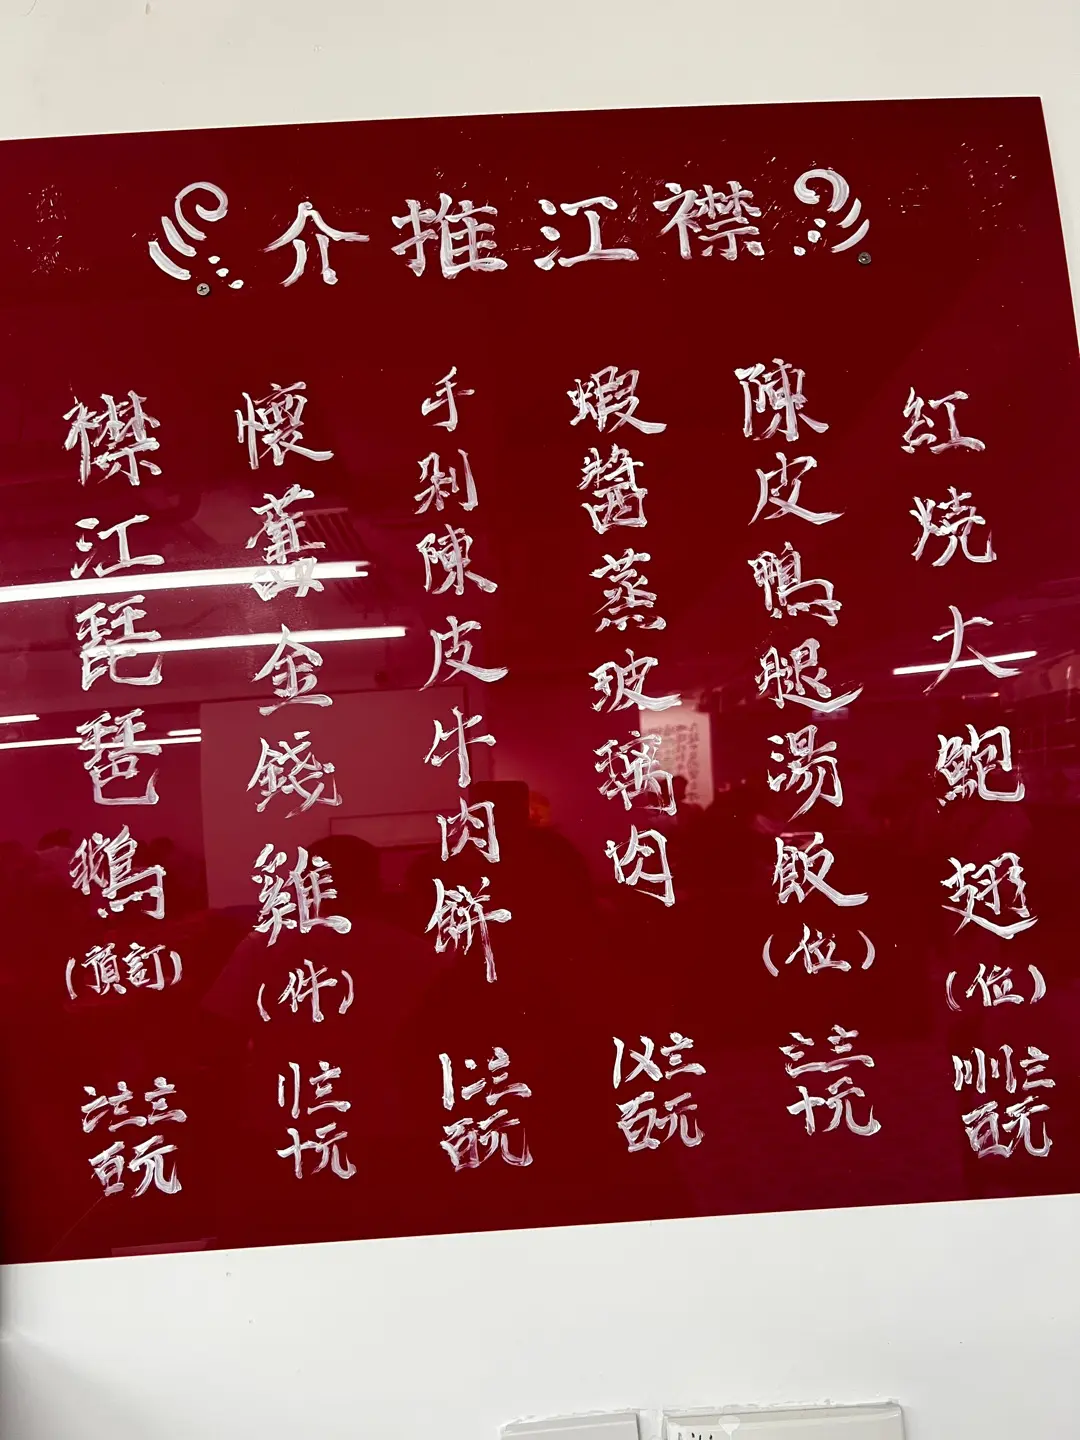 襟江推介
紅燒大鮑翅(位)
百元
陳皮鴨腿湯飯(位)
十元
蝦醬蒸玻璃肉
〡〤〨
百元
手剁陳皮牛肉餅
百元
懷舊金錢雞(件)
〢〨
十元
襟江琵琶鵝(預訂)
百元